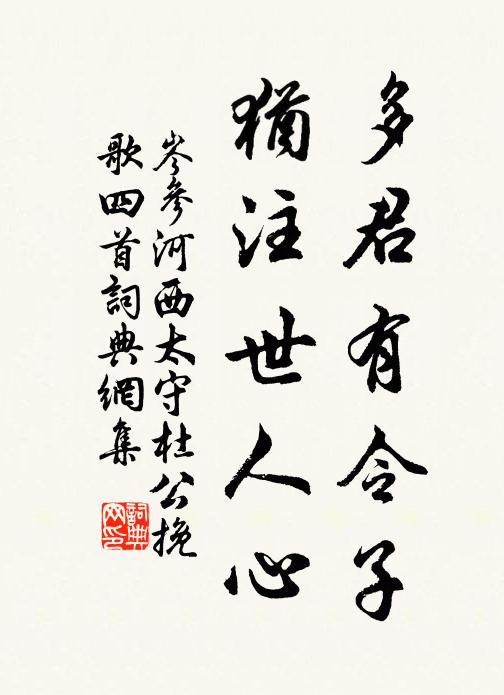 多君有令子
猶注世人心
岑參河西太守杜公挽
歌四首詞典網集
詞典
网印